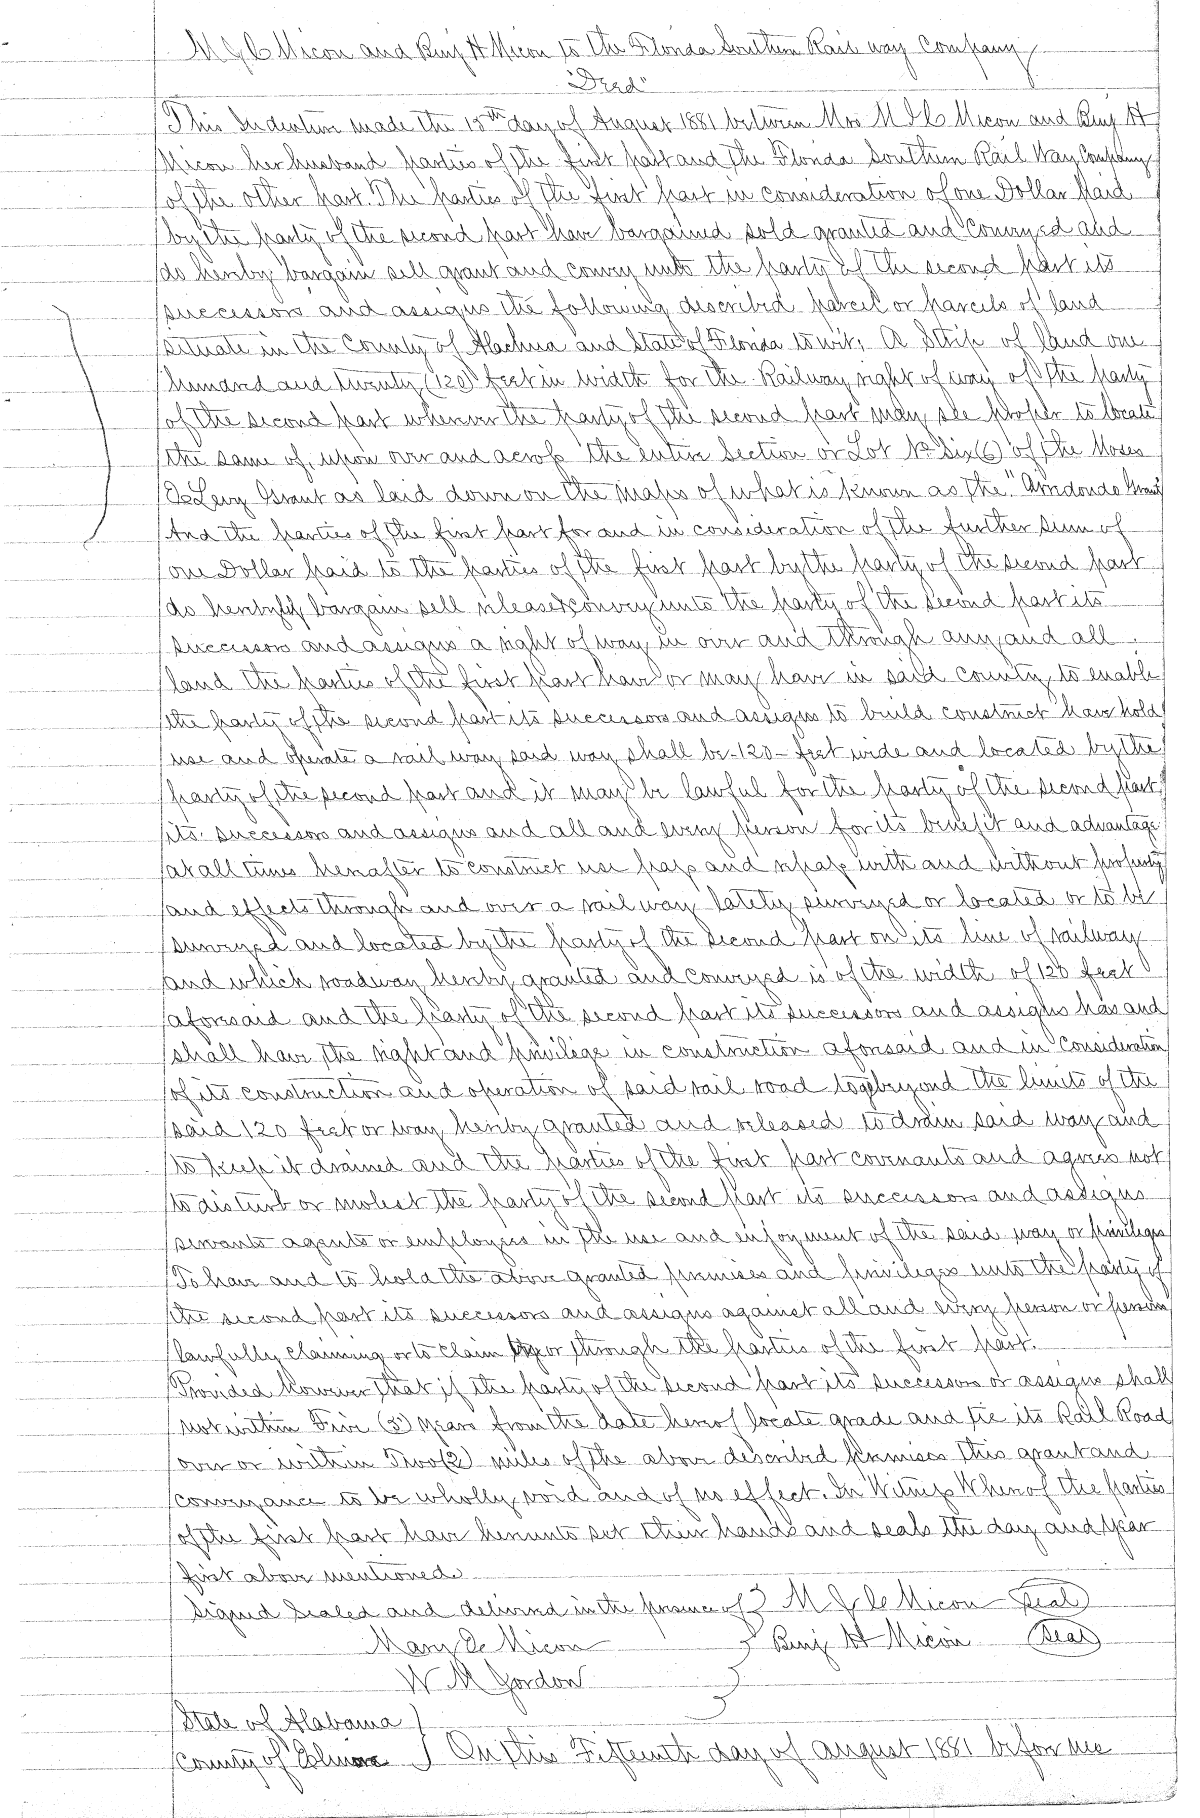 M J C Micon and Benj H Micon to the Florida Southern Rail way Company
"Deed"
This Indenture made the 15th day of August 1881 between Mrs M J C Micon and Benj H
Micon her husband parties of the first part and The Florida Southern Rail Way Company
of the other part. The parties of the first part in consideration of one Dollar Paid
by the party of the second part have bargained sold granted and conveyed and
do hereby bargain sell grant and convey unto the party of the second part its
successors and assigns the following described parcel or parcels of land
situate in the County of Alachua and State of Florida to wit; A Strip of land one
hundred and twenty (120) feet in width for the Railway right of way of the party
of the second part wherever the party of the second part may see proper to locate
the same of, upon over and across the entire Section or Lot No Six (6) of the Moses
E Levy Grant as laid down on the maps of what is known as the "Arredondo Grant"
And the parties of the first part for and in consideration of the further sum of
one Dollar paid to the parties of the first part by the party of the second part
do hereby bargain sell release & convey unto the party of the second part its
successors and assigns a right of way in over and through any and all
land the parties of the first part have or may have in said county to enable
the party of the second part its successors and assigns to build construct have hold
use and operate a rail way said way shall be -120- feet wide and located by the
party of the second part and it may be lawful for the party of the second part
its successors and assigns and all and every person for its benefit and advantage
at all times hereafter to construct use pass and repass with and without property
and effects through and over a rail way lately surveyed or located or to be
surveyed and located by the party of the second part on its line of railway
and which roadway hereby granted and conveyed is of the width of 120 feet
aforesaid and the party of the second part its successors and assigns has and
shall have the right and privilege in construction aforesaid and in Consideration
of its construction and operation of said rail road to go beyond the limits of the
said 120 feet or way hereby granted and released to drain said way and
to keep it drained and the parties of the first part covenants and agrees not
to disturb or molest the party of the second part its successors and assigns
servants agents or employees in the use and enjoyment of the said way or privileges
To have and to hold the above granted premises and privileges unto the party of
the second part its successors and assigns against all and every person or persons
lawfully claiming or to claim by or through the parties of the first part.
Provided however that if the party of the second part its successors or assigns shall
not within Five (5) years from the date hereof locate grade and tie its Rail Road
over or within Two (2) miles of the above described premises this grant and
conveyance to be wholly void and of no effect. In Witness Whereof the parties
of the first part have hereunto set their hands and seals the day and year
first above mentioned
Signed Sealed and delivered in the presence of } M J C Micon Seal
Mary C Micon } Benj H Micon Seal
W M Gordon
State of Alabama }
County of Elmore } On this Fifteenth day of August 1881 before me